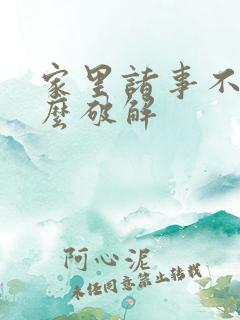 家里诸事不
麽破解
阿心泥
未经同意禁止转载